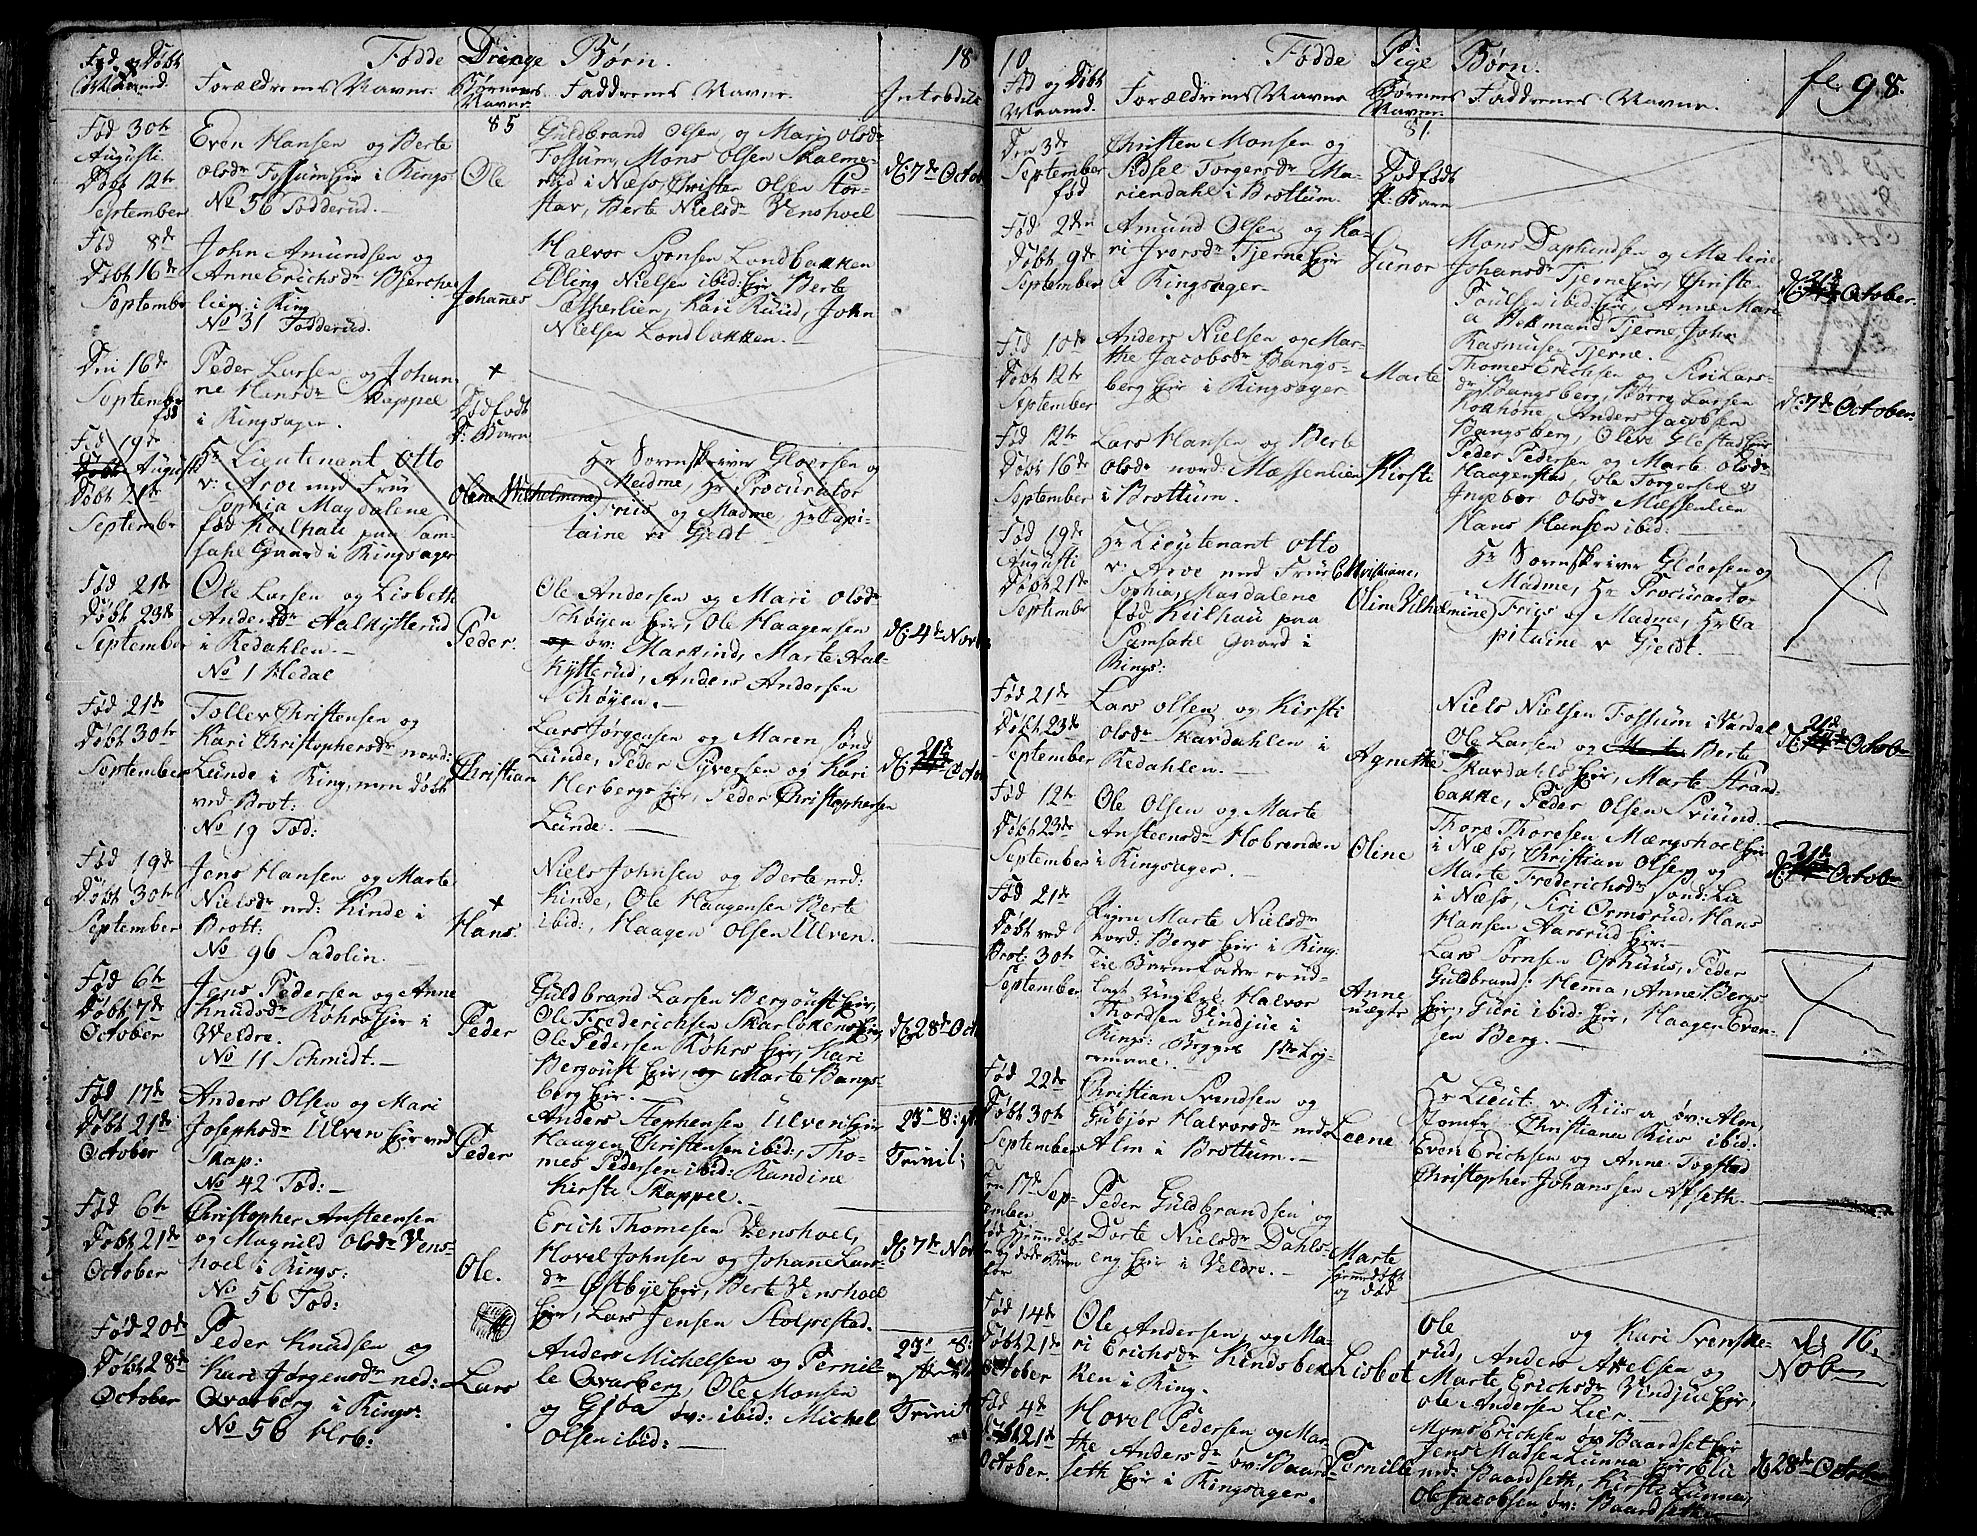 Fødde Drenge Børn. 18
Fød og Døbt
Forældrenes Navne. Børnenes Navne. Faddrenes Navne. Introdue
85
Fød 30te Augusti Døbt 12te September
Even Hansen og Berte
Olsdr Fossum Eir i Rings:
No 56 Todderud.
Ole
Guldbrand Olsen og Mari Olsdr
Fossum, Mons Olsen Skalme-
rud i Næss, Christen Olsen Stor-
stav, Berte Nielsdr Venshoel
d: 7de Octob
Fød 8de Døbt 16de September
John Amundsen og
Anne Erichsdr Bjerche
lien i Ring
No 31 Todderud.
Johannes
Halvor Svensen Londbakken
Elling Nielsen ibid: Eir Berte
Sætherlien, Kari Ruud, John
Nielsen Londbakken.
Den 16de September fød
Peder Larsen og Johan-
ne Hansdr Skappel
i Ringsager.
+
Dødfødt
D: Barn
Fød 19de Augusti Døbt 21de September
Hr Lieutenant Otto
v: Aroe med Frue
Sophia Magdalene
fød Keilhau paa Sam-
sahl Gaard i Ringsager
Oline Wilhelmine
Hr Sorenskriver Gløersen og
Madme, Hr Procurator
Friis og Madme, Hr Capi-
taine v: Gjeldt
Fød 21de Døbt 23de September
Ole Larsen og Lisbeth
Andersdr Aalkytterud
i Redahlen.
No 1 Hedal
Peder.
Ole Andersen og Mari Olsdr
Schøyen Eir, Ole Haagensen
øv: Markind, Marte Aal-
kytterud, Anders Andersen
Schøyen.
d: 4de Novb
Fød 21de Døbt 30te September
Tollev Christensen og
Kari Christophersdr nord:
Lunde i Ring, men døbt
ved Brot:
No 19 Tod:
Christian
Lars Jørgensen og Maren Sønd
Lunde, Peder Syversen og Kari
Herbergs Eir, Peder Christophersen
Lunde.
d: 21de Octob
Fød 19de Døbt 30te September
Jens Hansen og Marte
Nielsdr nrd: Kinde i
Brott:
No 96 Sadolin.
+
Hans.
Niels Johnsen og Berte nrd:
Kinde, Ole Haagensen Berte
ibid:, Haagen Olsen Ulven.
Fød 6te Døbt 7de October
Jens Pedersen og Anne
Knudsdr Rohrs Eir i
Veldre.
No 11 Schmidt.
Peder
Guldbrand Larsen Bergoust Eir,
Ole Frederichsen Skarlokens Eir
Ole Pedersen Røhrs Eir, Kari
Bergoust Eir, og Marte Bangs-
berg Eir.
d: 28de Octb
Fød 17de Døbt 21de October
Anders Olsen og Mari
Josephsdr Ulven Eir ved
Skap:
No 42 Tod:
Peder
Anders Stephensen Ulven Eir
Haagen Christensen ibid:, Tho-
mes Pedersen ibid: Randine
Kirsti Skappel.
23de S: eft
Trinit:
Fød 6te Døbt 21de October
Christopher Ansteensen
og Magnild Olsdr Vens-
hoel i Rings:
No 56 Tod:
Ole.
Erich Thomesen Venshoel,
Hovel Johnsen og Johanne Lars-
dr Østbye Eir, Berte Venshoel
Eir, Lars Jensen Stolpestad.
d: 7de Nov
Fød 20de Døbt 28de October
Peder Knudsen og
Kari Jørgensdr ned:
Qvarberg i Rings:
No 56 Hrb:
Lars
Anders Michelsen og Pernil-
le Qvarberg, Ole Monsen
og Gjøa øv: ibid: Michel
Olsen ibid:
23de S:
efter
Trinit
10 Fødde Pige Børn. fl. 98.
Fød og Døbt Maaned.
Forældrenes Navne Børnenes Navne. Faddrenes Navne.
81.
Den 3de September fød
Christen Monsen og
Sidsel Torgersdr Ma-
riendahl i Brottum.
Dødfødt
P: Barn
Fød 2den Døbt 9de September
Amund Olsen og Ka-
ri Iversdr Tjerne Eir
a Ringsager
Gunor
Mons Daphindsen og Malene
Johansdr Tjerne Eir, Christen
Poulsen ibid: Eir, Anne Marie
a Hekmand Tjerne, John
Rasmusen Tjerne.
d: 21de October.
Fød 10de Døbt 12te September
Anders Nielsen og Mar-
the Jacobsdr Bangs-
berg Eir i Ringsager
Marte
Thomes Erichsen og Siri Lars-
dr Bangsberg, Børre Larsen
Kokhöne, Anders Jacobsen
Bangsberg, Oleve Glestad Eir
d: 7de October.
Fød 12te Døbt 16de September
Lars Hansen og Berte
Olsdr nord: Mæssenlien
i Brottum.
Kirsti
Peder Pedersen og Marte Olsdr
Haagenstad, Ole Torgersen og
Ingebor Olsdr Mæssenlien
Hans Hansen ibid:
Fød 19de Augusti Døbt 21de September
Hr Lieutenant Otto
v: Aroe med Frue
Sophia Magdalene
fød Keilhau paa
Samsahl Gaard i
Rings:
Christiane,
Oline Vilhelmine
Hr Sorenskriver Gløersen og
Madme, Hr Procurator
Friis og Madme, Hr Ca
pitaine v Gjeldt.
Fød 21de Døbt 23de September
Lars Olsen og Kirsti
Olsdr Skardahlen i
Redahlen.
Agnethe
Niels Nielsen Fossum i Vardal
Ole Larsen og Berte
Skardahls Eir, Marte Strand-
bakke, Peder Olsen Sviund.
d: 21de Octob
Fød 12te Døbt 23de September
Ole Olsen og Marte
Ansteensdr Hobrenden
i Ringsager.
Oline
Thore Thoresen Mængshoel Eir
i Næss, Christian Olsen og
Marte Frederichsdr sønd: Lie
i Næss, Siri Ormsrud, Hans
Hansen Aarsrud Eir.
d: 21de Octob
Fød 21de Døbt ved Brot: 30te September
Pigen Marte Nielsdr
nord: Bergs Eir i Ring:
Til Barnefader erud-
lagt Ungkrl: Halvor
Thordsen Vindjue i
Rings: Begges 1ste Ley-
ermaal.
Anne
uægte
Lars Sørnsen Ophuus, Peder
Guldbrand: Hema, Anne Bergs-
Eir, Guri ibid: Eir, Haagen Even-
sen Berg.
Fød 22de Døbt 30te September
Christian Svendsen og
Gubjør Halvorsdr nrd:
Alm i Brottum.
Leene
Hr Lieut: v: Kiis a øv: Alm,
Jomfr: Christiane Kiis ibid:
Even Erichsen og Anne Togstad
Christopher Johansen Afseth
Den 17de Sep-
tember
Peder Guldbrandsen og
Dorte Nielsdr Dahls-
eng Eir i Veldre.
Marte
hjemmedøbt
og død
Fød 14de Døbt 21de October
Ole Andersen og Ma-
ri Erichsdr Kindsbek
ken i Ring.
Lisbet
Ole og Kari Svenske-
rud, Anders Axelsen og
Marte Erichsdr Vindjue Eir,
Ole Andersen Lier.
d: 16.
Nob
Fød 4de Døbt 21de October.
Hovel Pedersen og Mar-
the Andersdr øv: Baard-
seth Eir i Ringsager.
Pernille
Mons Erichsen øv Baardset Eir
Jens Madsen Lunna Eir Olia
nrd: Baardseth, Kirsti Lunna
Ole Jacobsen øv: Baardseth
d: 28de October